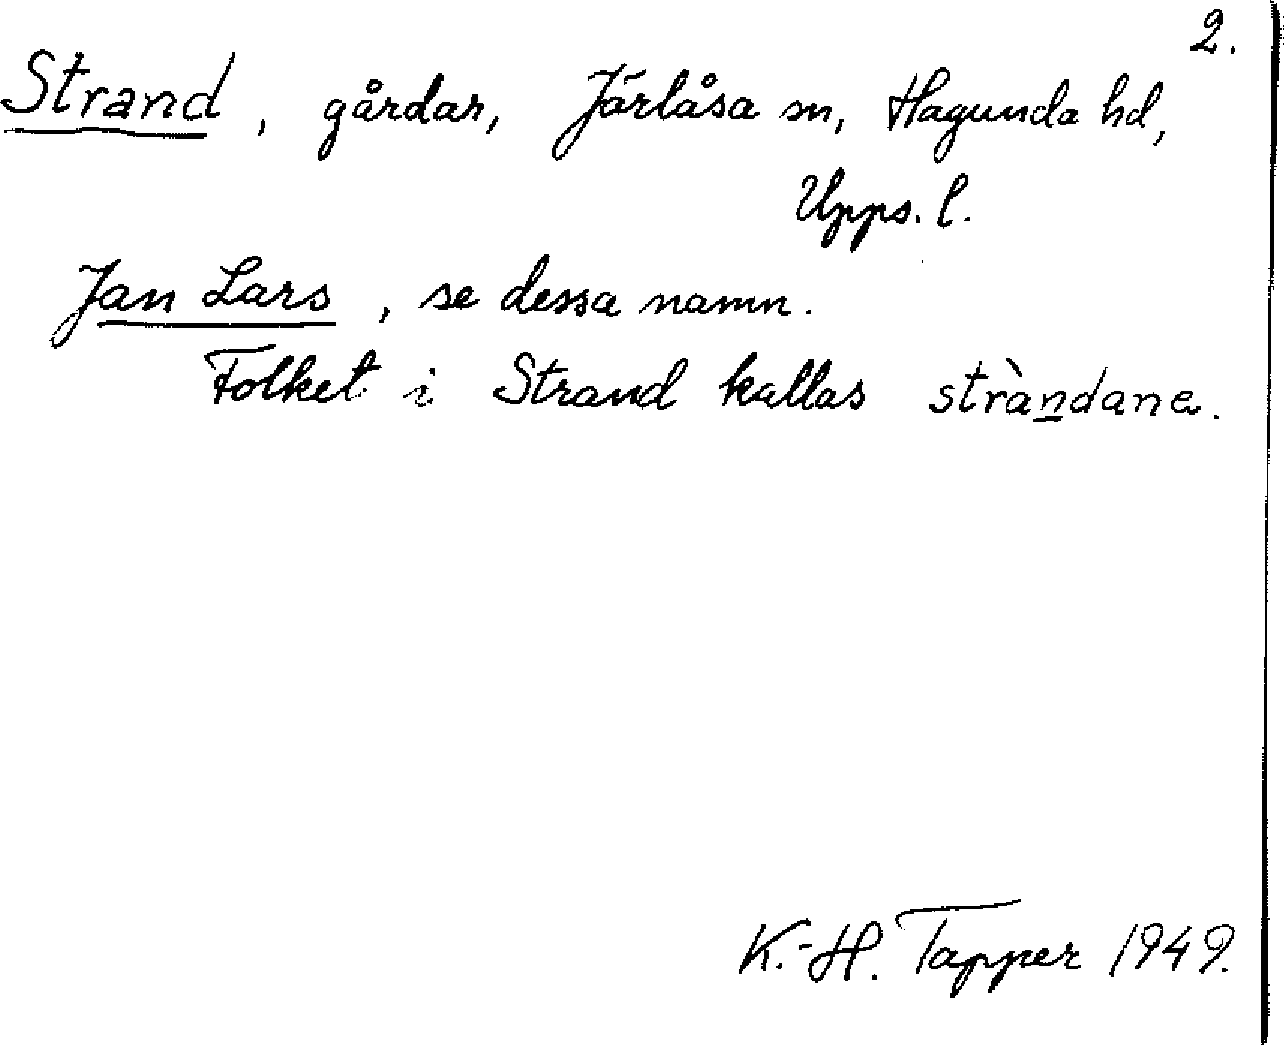 2.
Strand, gårdar, Järlåsa sn, Hagunda hd,
Upps. l.
Jan Lars, se dessa namn.
Folket i Strand kallas stràn̲dane.
K.-H. Tapper 1949.